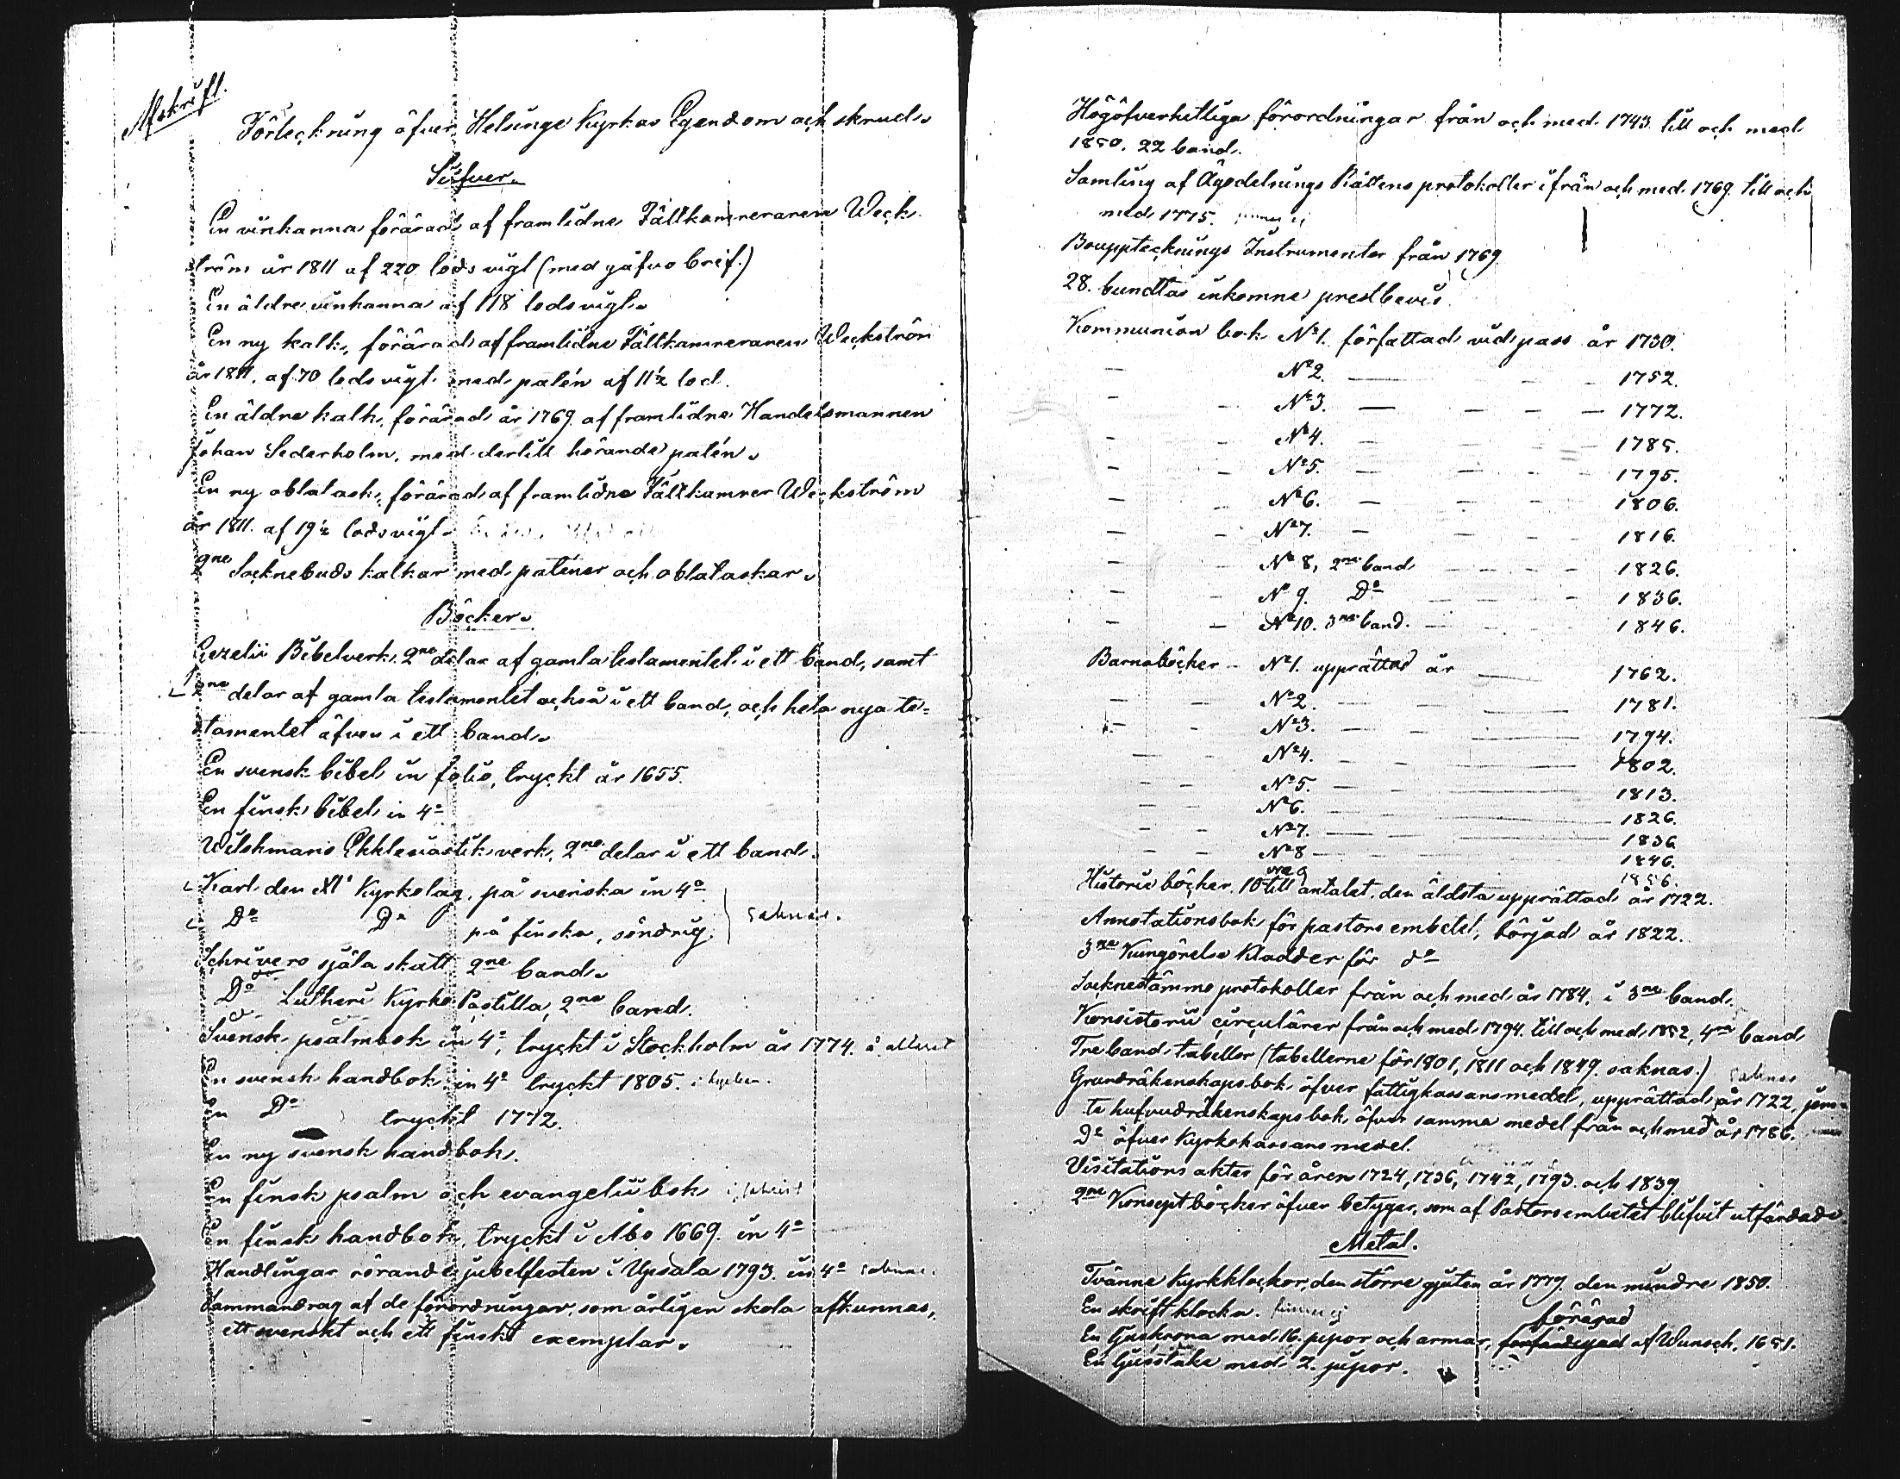 Afskrift.
Förteckning öfver Helsinge Kyrkas Egendom och skrud.
Silfver.
En vinkanna förärad af framlidne Fältkamreraren Weck
ström år 1811 af 220 lods vigt (med gåfvo bref.)
En äldre vinkanna af 118 lods vigt.
En ny kalk, förärad af framlidne Fältkamreraren Weckström
år 1811. af 70 lods vigt med patén af 11½ lod.
En äldre kalk, förärad år 1769. af framlidne Handelsmannen
Johan Sederholm, med dertill hörande patén.
En ny oblatask, förärad af framlidne Fältkamrer Weckström
år 1811. af 19½ lods vigt.
2ne Socknebuds kalkar med paténer och oblataskar.
Böcker.
Gezelii Bibelverk, 2ne delar af gamla testamentet i ett band, samt
2ne delar af gamla testamentet också i ett band, och hela nya te=
stamentet äfven i ett band.
En svensk bibel in folio, tryckt år 1655.
En finsk bibel in 4o
Wilskmans Ekklesiastik verk, 2ne delar i ett band.
Karl den XIs Kyrkolag, på svenska in 4o
Do Do på finska, söndrig. saknas.
Schrivers själa skatt 2ne band.
Do Lutheri Kyrko Postilla, 2ne band.
Svensk psalmbok in 4o, tryckt i Stockholm år 1774. å altaret
En svensk handbok in 4o tryckt 1805. i kyrkan.
En Do tryckt 1772.
En ny svensk handbok.
En finsk psalm och evangelii bok
En finsk handbok, tryckt i Åbo 1669. in 4o
Handlingar rörande jubelfesten i Upsala 1793. in 4o saknas.
Sammandrag af de förordningar, som årligen skola afkunnas,
ett svenskt och ett finskt exemplar.
Högöfverhetliga förordningar från och med 1743 till och med
1850. 22 band.
Samling af Ägodelnings Rättens protokoller ifrån och med 1769. till och
med 1775. finnes ej
Bouppteckings Instrumenter från 1769
28. bundtar inkomne prestbevis.
Kommunion bok No 1. författad vid pass år 1730.
- - No 2. — - - - 1752.
- - No 3. — - - - 1772.
- - No 4. — - - - 1785.
- - No 5. — - - - 1795.
- - No 6. — - - - 1806.
- - No 7. — - - - 1816.
- - No 8, 2ne band - - - 1826.
- - No 9. Do - - - 1836.
- - No 10. 3ne band. - - - 1846.
Barnaböcker - No 1. upprättad år — 1762.
- - No 2. — 1781.
- - No 3. — 1794.
- - No 4. — 1802.
- - No 5. — 1813.
- - No 6. — 1826.
- - No 7. — 1836
- - No 8 — 1846.
No 9 1856.
Historie böcker, 10 till antalet, den äldsta upprättad år 1722.
Annotationsbok för pastors embetet, börjad år 1822.
3ne Kungörelse Kladder för do
Socknestämmo protokoller från och med år 1784, i 3ne band.
Konsistorii circulärer från och med 1794. till och med 1852, 4ra band
Tre band tabeller (tabellerne för 1801, 1811 och 1849. saknas.) saknas
Grundräkenskapsbok öfver fattigkassans medel, upprättad år 1722, jem=
te hufvudräkenskaps bok öfver samma medel från och med år 1786.
Do öfver Kyrkokassans medel.
Visitations akter för åren 1724, 1736, 1742, 1793. och 1839
2ne Konseptböcker öfver betyger, som af Pastorsembetet blifvit utfärdade
Metal.
Tvänne Kyrkklockor, den större gjuten år 1779. den mindre 1850.
En skriftklocka. finnes ej
förärad
En ljuskrona med 16. pipor och armar, förfärdigad af Wunsch, 1651.
En ljusstake med 2. pipor.